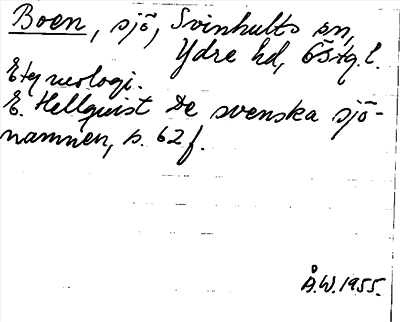 Boen, sjö, Svinhults sn,
Ydre hd, Östg.l.
Etymologi.
E. Hellquist De svenska sjö-
namnen, s. 62 f.
Å.W. 1955.